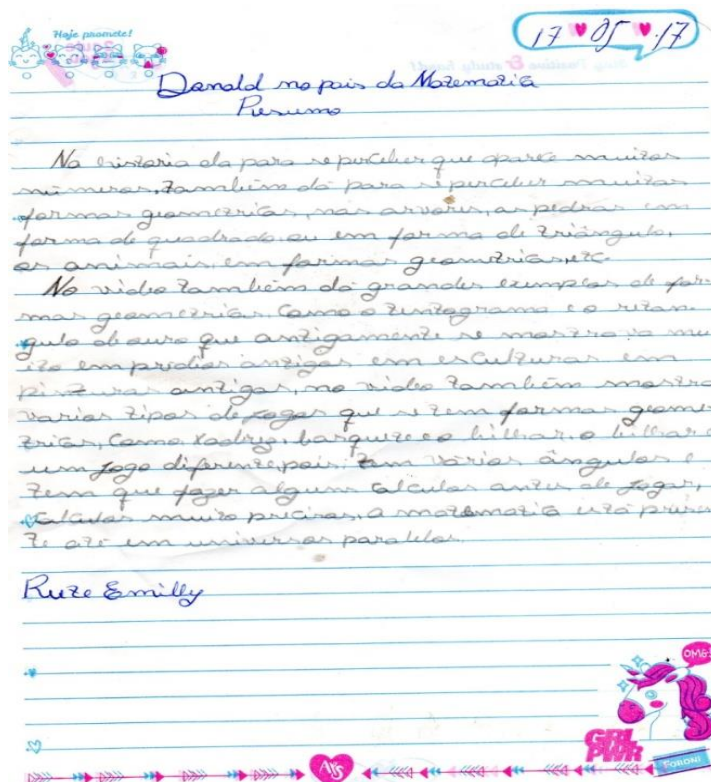 Hoje promete!
17 05 17
Donald no pais da Matematica
Resumo
Na historia da para se perceber que aparece muitos
números, também dá para se perceber muitas
formas geometricas, nas arvores, as pedras em
forma de quadrado ou em forma de triângulo,
os animais em formas geometricas, etc.
No video também dá grandes exemplos de for
mas geometricas. Como o e o retan
gulo de ouro que antigamente se mostrava mu
ito em predios antigos em esculturas em
pinturas antigas, no video também mostra
varios tipos de jogos que se tem formas geome
tricas, Como Xadrez, basquete e o bilhar, o bilhar é
um jogo diferente, pois tem vários ângulos e
tem que fazer alguns calculos antes de jogar,
Calculos muito precisos, a matematica está presen
te até em universos paralelos.
Rute Emilly
OMG!
GRL
PWR
FORONI